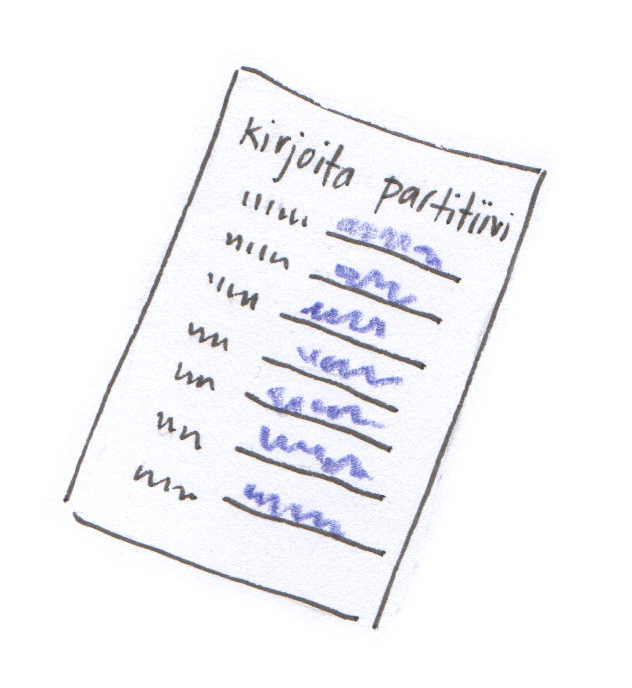 kirjoita partitiivi